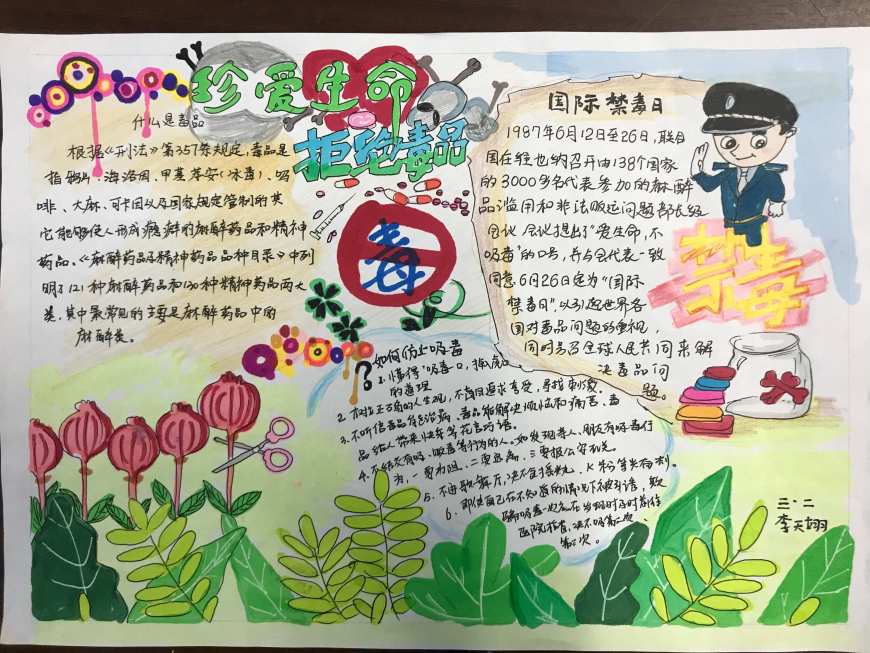 珍爱生命
拒绝毒品
什么是毒品
根据《刑法》第357条规定,毒品是
指鸦片、海洛因、甲基苯安(冰毒)、吗
啡、大麻、可卡因以及国家规定管制的其
它能够使人形成瘾癖的麻醉药品和精神
药品。《麻醉药品及精神药品品种目录》中列
明了121种麻醉药品和130种精神药品两大
类,其中最常见的主要是麻醉药品中的
麻醉类。
毒
国际禁毒日
1987年6月12日至26日,联合
国在维也纳召开由138个国家
的3000多名代表参加的麻醉
品滥用和非法贩运问题部长级
会议,会议提出了“爱生命,不
吸毒”的口号,并与会代表一致
同意6月26日定为“国际
禁毒日”,以引起世界各
国对毒品问题的重视,
同时号召全球人民共同来解
决毒品问
题。
禁毒
如何防止吸毒
?
1.懂得“吸毒一口,掉入虎口”
的道理
2.树立正确的人生观,不盲目追求享受,寻找刺激。
3.不听信毒品能治病、毒品能解决烦恼和痛苦、毒
品给人带来快乐等花言巧语。
4.不结交有吸、贩毒等行为的人。如发现亲人、朋友有吸毒行
为,一要劝阻,二要远离,三要报公安机关。
5.不进歌舞厅,决不
6.即使自己在不知道的情况下被引诱、欺
骗吸毒一次
医院
第二次。
三·二
李天翊